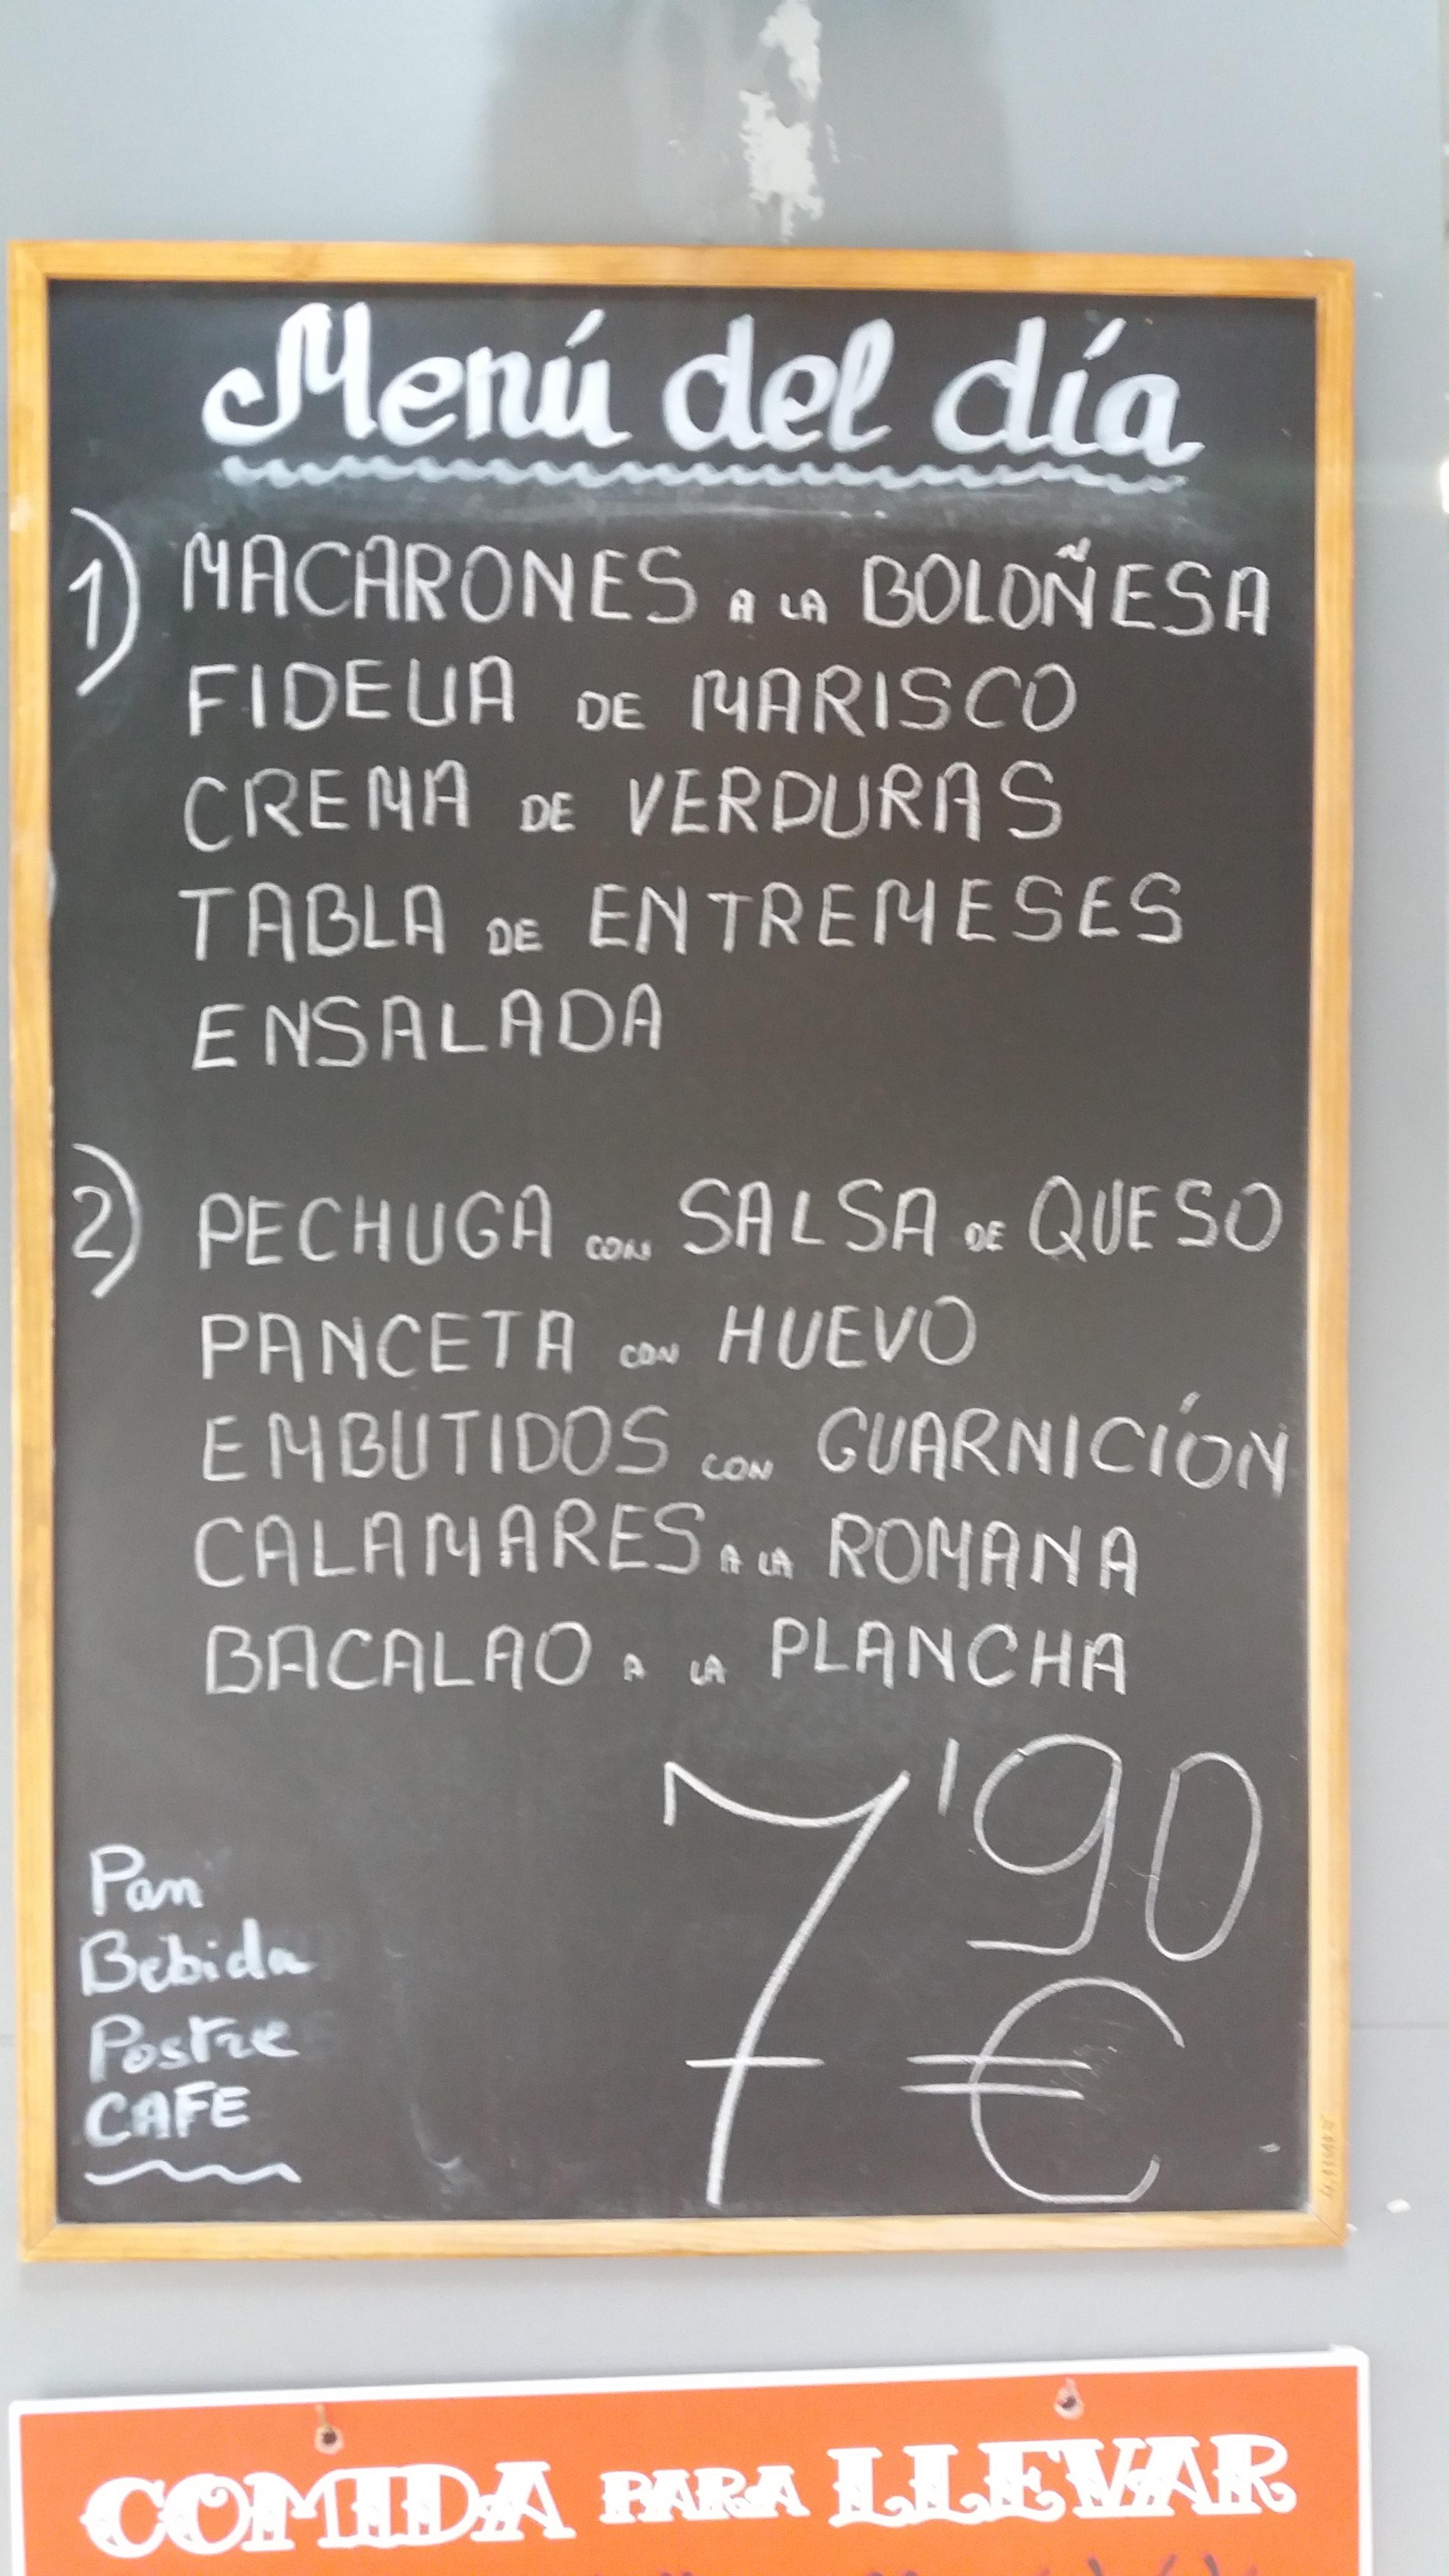 Menú del día
1) MACARONES A LA BOLOÑESA
FIDEUA DE MARISCO
CREMA DE VERDURAS
TABLA DE ENTREMESES
ENSALADA
2) PECHUGA CON SALSA DE QUESO
PANCETA CON HUEVO
EMBUTIDOS CON GUARNICÍON
CALAMARES A LA ROMANA
BACALAO A LA PLANCHA
7'90
€
Pan
Bebida
Postre
CAFE
COMIDA PARA LLEVAR